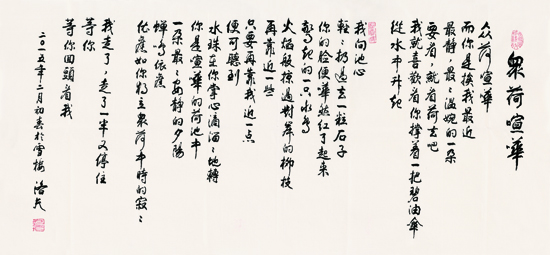 衆荷喧嘩
众荷喧嘩
而你是挨我最近
最静,最々溫婉的一朵
要看,就看荷去吧
我就喜歡看你撑着一把碧油傘
從水中升起
我向池心
輕々扔過去一粒石子
你的脸便嘩然红了起來
驚起的一只水鸟
火焰般掠過對岸的柳枝
再靠近一些
只要再靠我近一点
便可聽到
水珠在你掌心滴溜々地轉
你是喧嘩的荷池中
一朵最々安静的夕陽
蟬鳴依舊
依舊如你獨立衆荷中時的寂々
我走了,走了一半又停住
等你
等你回頭看我
二〇一五年二月初春於雪樓 洛夫